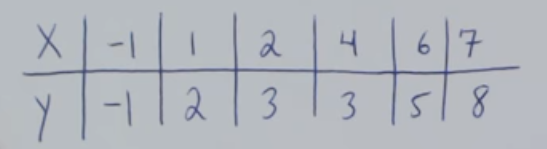 X -1 1 2 4 6 7
Y -1 2 3 3 5 8